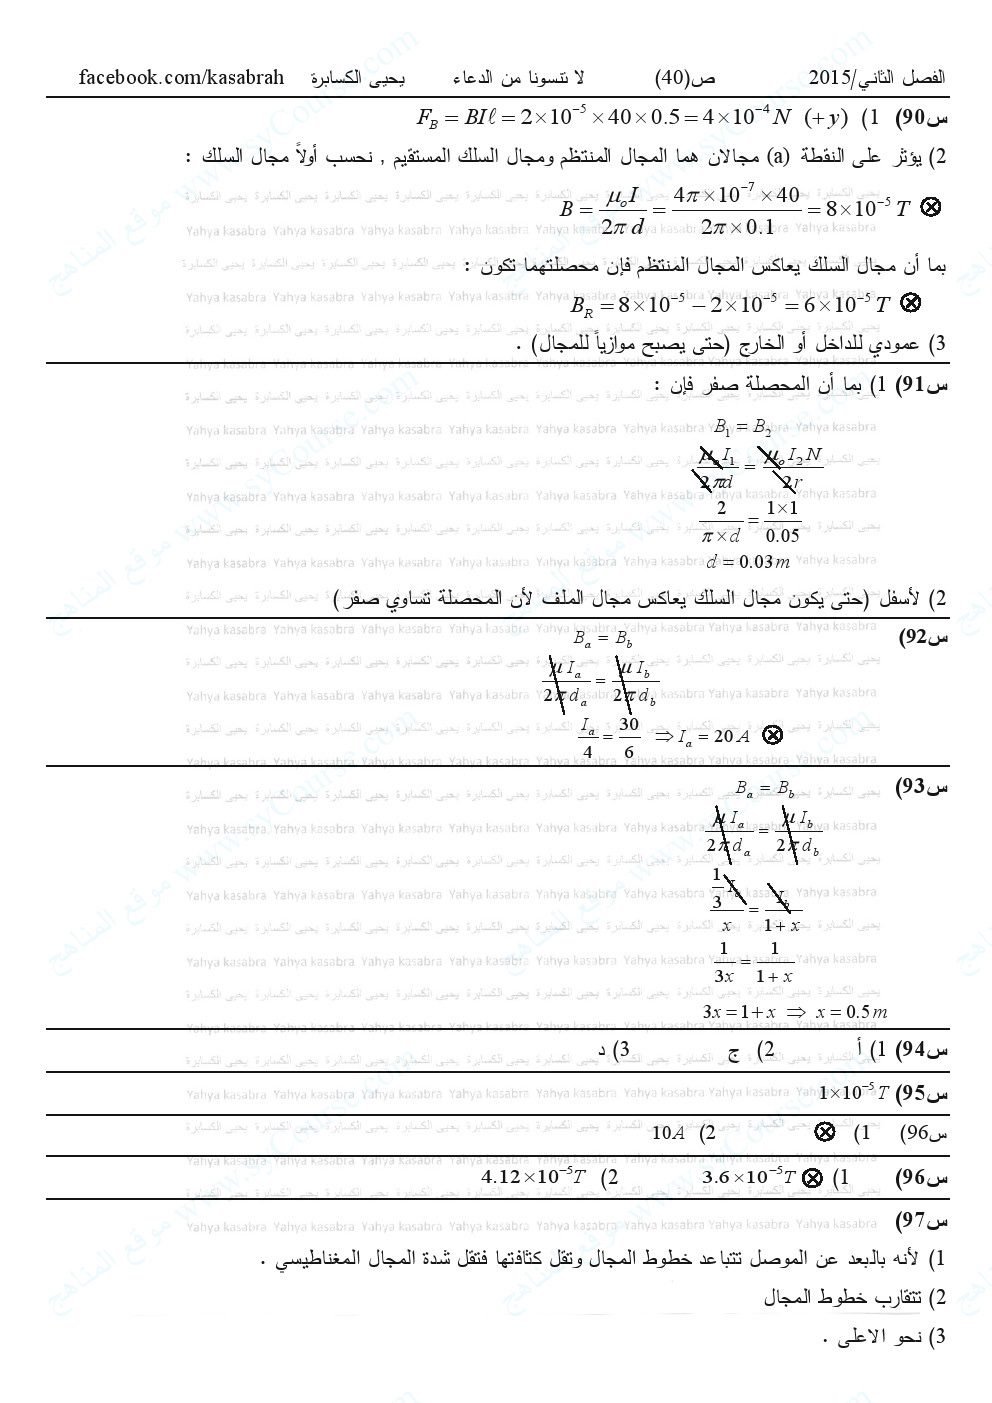 الفصل الثاني/2015 ص(40) لا تنسونا من الدعاء يحيى الكسابرة facebook.com/kasabrah
س90) 1) F_B = BIℓ = 2×10⁻⁵ ×40×0.5 = 4×10⁻⁴ N (+y)
2) يؤثر على النقطة (a) مجالان هما المجال المنتظم ومجال السلك المستقيم , نحسب أولاً مجال السلك :
B = μ₀I / 2π d = 4π×10⁻⁷ ×40 / 2π×0.1 = 8×10⁻⁵ T ⊗
بما أن مجال السلك يعاكس المجال المنتظم فإن محصلتهما تكون :
B_R = 8×10⁻⁵ − 2×10⁻⁵ = 6×10⁻⁵ T ⊗
3) عمودي للداخل أو الخارج (حتى يصبح موازياً للمجال) .
س91) 1) بما أن المحصلة صفر فإن :
B₁ = B₂
μ₀ I₁ / 2πd = μ₀ I₂ N / 2r
2 / π×d = 1×1 / 0.05
d = 0.03m
2) لأسفل (حتى يكون مجال السلك يعاكس مجال الملف لأن المحصلة تساوي صفر)
س92) B_a = B_b
μ I_a / 2π d_a = μ I_b / 2π d_b
I_a / 4 = 30 / 6 ⇒ I_a = 20 A ⊗
س93) B_a = B_b
μ I_a / 2π d_a = μ I_b / 2π d_b
1/3 I_b / x = I_b / 1+x
1 / 3x = 1 / 1+x
3x = 1+x ⇒ x = 0.5m
س94) 1) أ 2) ج 3) د
س95) 1×10⁻⁵ T
س96) 1) ⊗ 2) 10A
س96) 1) ⊗ 3.6×10⁻⁵T 2) 4.12×10⁻⁵T
س97)
1) لأنه بالبعد عن الموصل تتباعد خطوط المجال وتقل كثافتها فتقل شدة المجال المغناطيسي .
2) تتقارب خطوط المجال
3) نحو الاعلى .
موقع المناهج www.syCourse.com
يحيى الكسابرة
Yahya kasabra